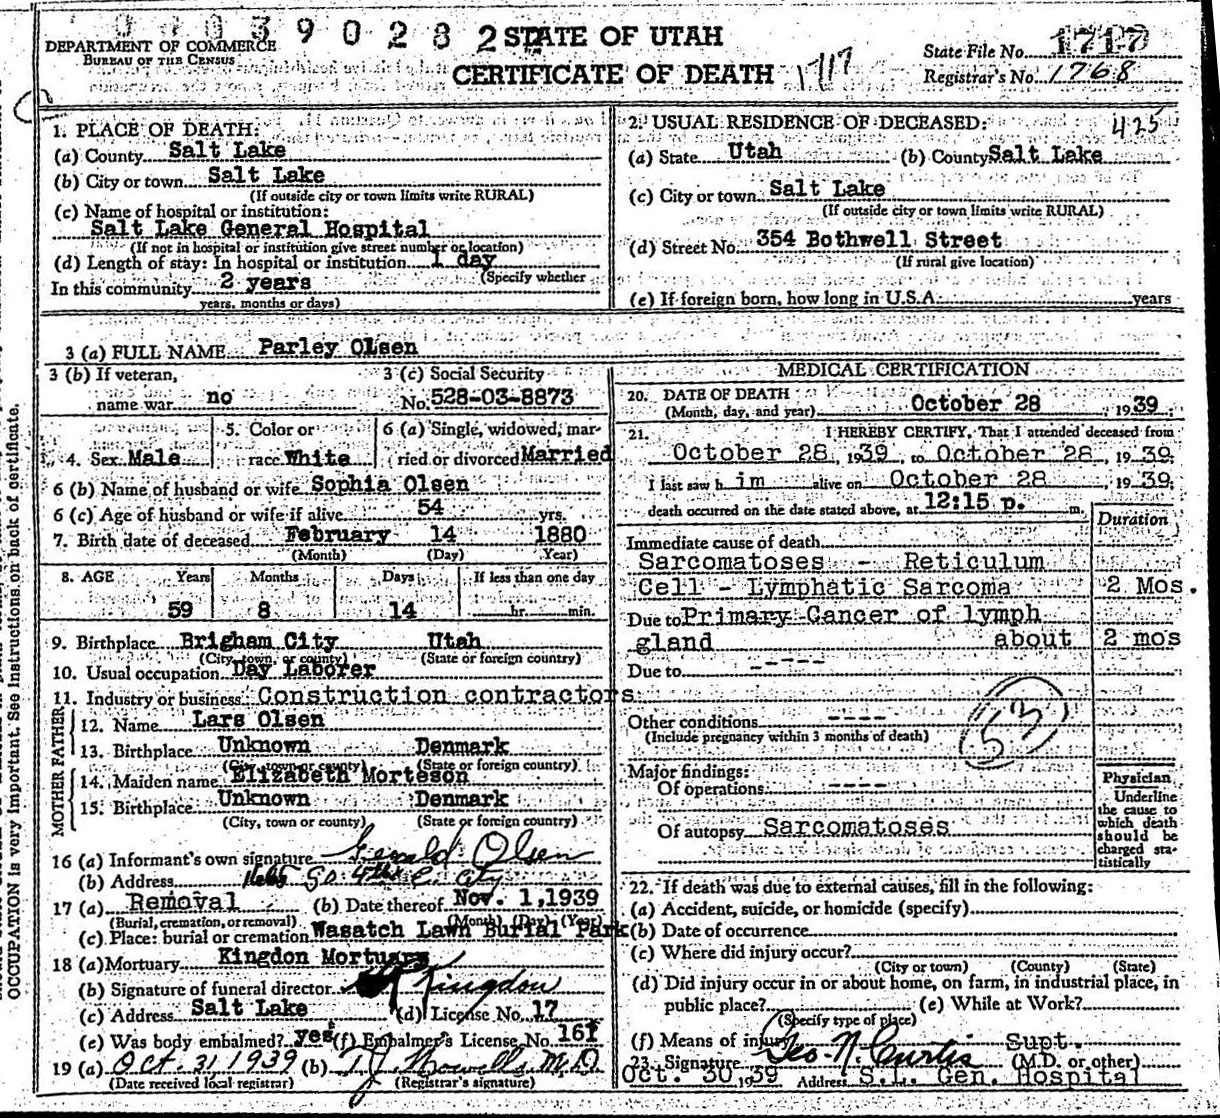 0 0 3 9 0 2 8 2
STATE OF UTAH
CERTIFICATE OF DEATH
1717
DEPARTMENT OF COMMERCE
BUREAU OF THE CENSUS
State File No. 1717
Registrar's No. 1768
425
1. PLACE OF DEATH:
(a) County Salt Lake
(b) City or town Salt Lake
(If outside city or town limits write RURAL)
(c) Name of hospital or institution:
Salt Lake General Hospital
(If not in hospital or institution give street number or location)
(d) Length of stay: In hospital or institution 1 day
(Specify whether
In this community 2 years
years, months or days)
2. USUAL RESIDENCE OF DECEASED:
(a) State Utah (b) County Salt Lake
(c) City or town Salt Lake
(If outside city or town limits write RURAL)
(d) Street No. 354 Bothwell Street
(If rural give location)
(e) If foreign born, how long in U.S.A. years
3 (a) FULL NAME Parley Olsen
3 (b) If veteran,
name war no
3 (c) Social Security
No. 528-03-8873
4. Sex Male
5. Color or
race White
6 (a) Single, widowed, mar-
ried or divorced Married
6 (b) Name of husband or wife Sophia Olsen
6 (c) Age of husband or wife if alive 54 yrs.
7. Birth date of deceased February 14 1880
(Month) (Day) (Year)
8. AGE Years Months Days If less than one day
59 8 14 hr. min.
9. Birthplace Brigham City Utah
(City, town, or county) (State or foreign country)
10. Usual occupation Day Laborer
11. Industry or business Construction contractors
FATHER
12. Name Lars Olsen
13. Birthplace Unknown Denmark
(City, town or county) (State or foreign country)
MOTHER
14. Maiden name Elizabeth Morteson
15. Birthplace Unknown Denmark
(City, town or county) (State or foreign country)
16 (a) Informant's own signature Gerald Olsen
(b) Address So. 4th E. City
17 (a) Removal (b) Date thereof Nov. 1, 1939
(Burial, cremation, or removal) (Month) (Day) (Year)
(c) Place: burial or cremation Wasatch Lawn Burial Park
18 (a) Mortuary Kingdon Mortuary
(b) Signature of funeral director Kingdon
(c) Address Salt Lake (d) License No. 17
(e) Was body embalmed? yes (f) Embalmer's License No.
19 (a) Oct. 31, 1939 (b) T.J. Howells, M.D.
(Date received local registrar) (Registrar's signature)
MEDICAL CERTIFICATION
20. DATE OF DEATH
(Month, day, and year) October 28, 1939
21. I HEREBY CERTIFY, That I attended deceased from
October 28, 1939, to October 28, 1939.
I last saw h im alive on October 28, 1939.
death occurred on the date stated above, at 12:15 p. m.
Duration
Immediate cause of death
Sarcomatoses - Reticulum
Cell - Lymphatic Sarcoma 2 Mos.
Due to Primary Cancer of lymph
gland about 2 mos
Due to -----
Other conditions ----
(Include pregnancy within 3 months of death)
53
Major findings:
Of operations ----
Of autopsy Sarcomatoses
Physician
Underline
the cause to
which death
should be
charged sta-
tistically
22. If death was due to external causes, fill in the following:
(a) Accident, suicide, or homicide (specify)
(b) Date of occurrence
(c) Where did injury occur?
(City or town) (County) (State)
(d) Did injury occur in or about home, on farm, in industrial place, in
public place? (e) While at Work?
(Specify type of place)
(f) Means of injury
23. Signature Geo. N. Curtis Supt.
(M.D. or other)
Oct. 30, 1939 Address S.L. Gen. Hospital
OCCUPATION is very important. See instructions on back of certificate.